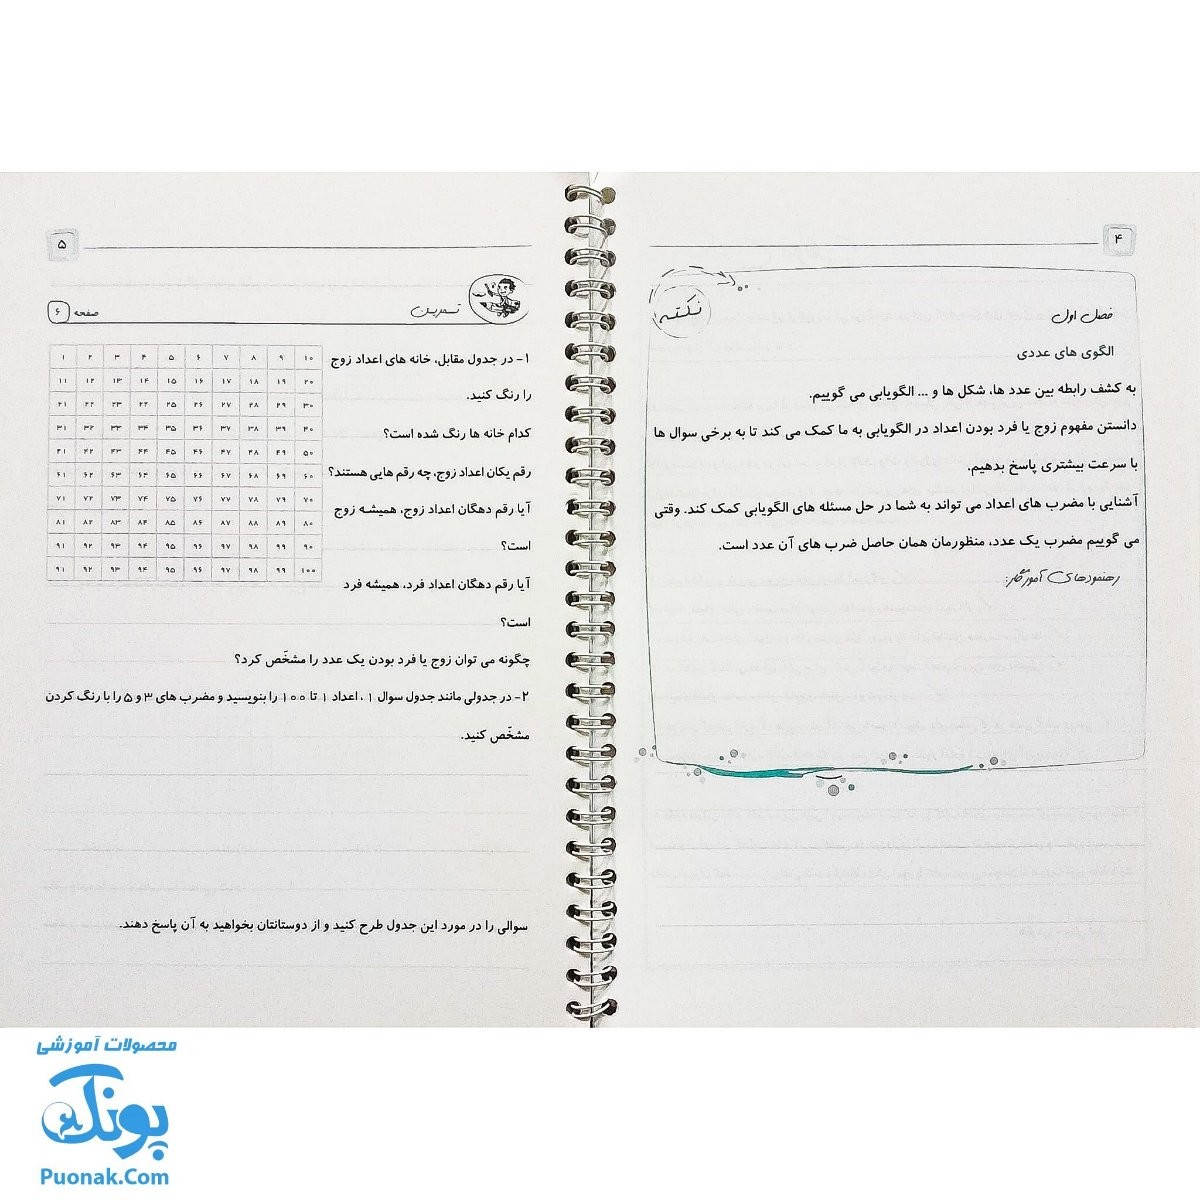 ۴
نکته
فصل اول
الگوی های عددی
به کشف رابطه بین عدد ها، شکل ها و ... الگویابی می گوییم.
دانستن مفهوم زوج یا فرد بودن اعداد در الگویابی به ما کمک می کند تا به برخی سوال ها
با سرعت بیشتری پاسخ بدهیم.
آشنایی با مضرب های اعداد می تواند به شما در حل مسئله های الگویابی کمک کند. وقتی
می گوییم مضرب یک عدد، منظورمان همان حاصل ضرب های آن عدد است.
رهنمودهای آموزگار:
۵
تمرین
صفحه ۶
۱- در جدول مقابل، خانه های اعداد زوج
را رنگ کنید.
کدام خانه ها رنگ شده است؟
رقم یکان اعداد زوج، چه رقم هایی هستند؟
آیا رقم دهگان اعداد زوج، همیشه زوج
است؟
آیا رقم دهگان اعداد فرد، همیشه فرد
است؟
چگونه می توان زوج یا فرد بودن یک عدد را مشخّص کرد؟
۱ ۲ ۳ ۴ ۵ ۶ ۷ ۸ ۹ ۱۰
۱۱ ۱۲ ۱۳ ۱۴ ۱۵ ۱۶ ۱۷ ۱۸ ۱۹ ۲۰
۲۱ ۲۲ ۲۳ ۲۴ ۲۵ ۲۶ ۲۷ ۲۸ ۲۹ ۳۰
۳۱ ۳۲ ۳۳ ۳۴ ۳۵ ۳۶ ۳۷ ۳۸ ۳۹ ۴۰
۴۱ ۴۲ ۴۳ ۴۴ ۴۵ ۴۶ ۴۷ ۴۸ ۴۹ ۵۰
۶۱ ۶۲ ۶۳ ۶۴ ۶۵ ۶۶ ۶۷ ۶۸ ۶۹ ۶۰
۷۱ ۷۲ ۷۳ ۷۴ ۷۵ ۷۶ ۷۷ ۷۸ ۷۹ ۷۰
۸۱ ۸۲ ۸۳ ۸۴ ۸۵ ۸۶ ۸۷ ۸۸ ۸۹ ۸۰
۹۱ ۹۲ ۹۳ ۹۴ ۹۵ ۹۶ ۹۷ ۹۸ ۹۹ ۹۰
۹۱ ۹۲ ۹۳ ۹۴ ۹۵ ۹۶ ۹۷ ۹۸ ۹۹ ۱۰۰
۲- در جدولی مانند جدول سوال ۱، اعداد ۱ تا ۱۰۰ را بنویسید و مضرب های ۳ و ۵ را با رنگ کردن
مشخّص کنید.
سوالی را در مورد این جدول طرح کنید و از دوستانتان بخواهید به آن پاسخ دهند.
محصولات آموزشی
پونک
Puonak.Com